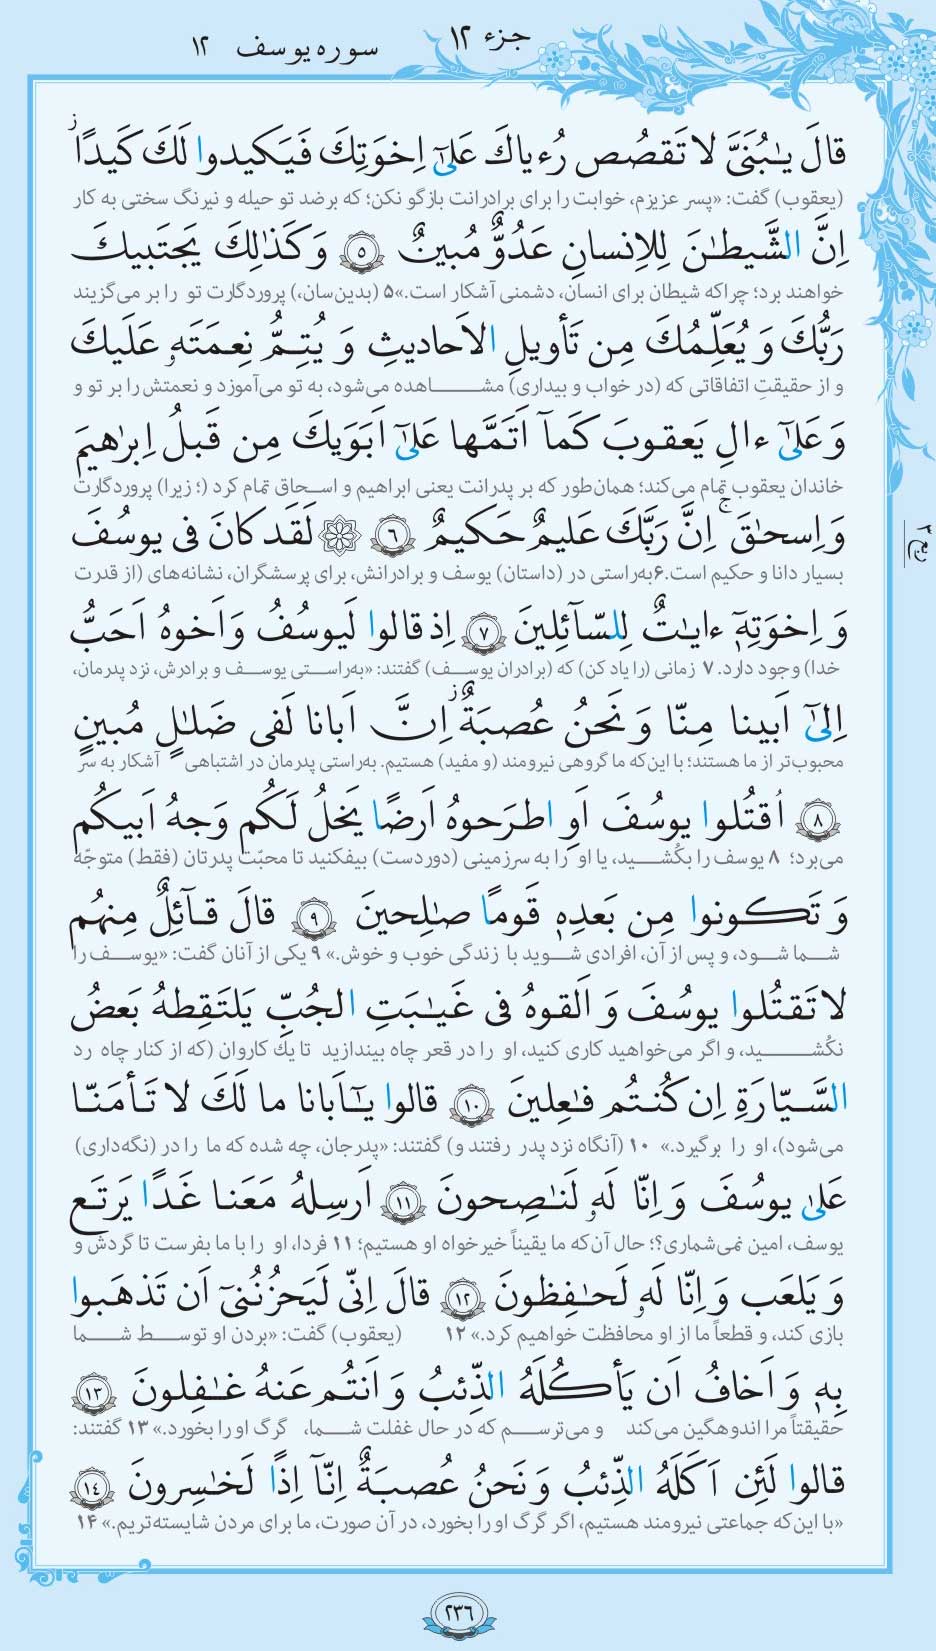 جزء ۱۲
سوره یوسف ۱۲
قالَ يـٰبُنَىَّ لا تَقصُص رُءياكَ عَلىٰٓ اِخوَتِكَ فَيَكيدوا لَكَ كَيدًاۖ ز
(یعقوب) گفت: «پسر عزیزم، خوابت را برای برادرانت بازگو نکن؛ که برضد تو حیله و نیرنگ سختی به کار
اِنَّ الشَّيطـٰنَ لِلاِنسانِ عَدُوٌّ مُبينٌ ﴿٥﴾ وَ كَذٰلِكَ يَجتَبيكَ
خواهند برد؛ چراکه شیطان برای انسان، دشمنی آشکار است.»۵ (بدین‌سان،) پروردگارت تو را بر می‌گزیند
رَبُّكَ وَ يُعَلِّمُكَ مِن تَأويلِ الاَحاديثِ وَ يُتِمُّ نِعمَتَه‌ُو عَلَيكَ
و از حقیقتِ اتفاقاتی که (در خواب و بیداری) مشـاهده می‌شود، به تو می‌آموزد و نعمتش را بر تو و
وَ عَلىٰٓ ءالِ يَعقوبَ كَمآ اَتَمَّها عَلىٰٓ اَبَوَيكَ مِن قَبلُ اِبرٰهيمَ
خاندان یعقوب تمام می‌کند؛ همان‌طور که بر پدرانت یعنی ابراهیم و اسـحاق تمام کرد (؛ زیرا) پروردگارت
وَ اِسحـٰقَ ۚ اِنَّ رَبَّكَ عَليمٌ حَكيمٌ ﴿٦﴾ لَقَد كانَ فى يوسُفَ
بسیار دانا و حکیم است.۶به‌راستی در (داستان) یوسف و برادرانش، برای پرسشگران، نشانه‌های (از قدرت
وَ اِخوَتِهٖٓ ءايـٰتٌ لِلسّآئِلينَ ﴿٧﴾ اِذ قالوا لَيوسُفُ وَ اَخوهُ اَحَبُّ
خدا) وجود دارد. ۷ زمانی (را یاد کن) که (برادران یوسـف) گفتند: «به‌راسـتی یوسـف و برادرش، نزد پدرمان،
اِلىٰٓ اَبينا مِنّا وَ نَحنُ عُصبَةٌ ز اِنَّ اَبانا لَفى ضَلـٰلٍ مُبينٍ
محبوب‌تر از ما هستند؛ با این‌که ما گروهی نیرومند (و مفید) هستیم. به‌راستی پدرمان در اشتباهی آشکار به سر
﴿٨﴾ اُقتُلوا يوسُفَ اَوِ اطرَحوهُ اَرضًا يَخلُ لَكُم وَجهُ اَبيكُم
می‌برد؛ ۸ یوسف را بکُشـید، یا او را به سرزمینی (دوردست) بیفکنید تا محبّت پدرتان (فقط) متوجّه
وَ تَكونوا مِن بَعدِهٖ قَومًا صـٰلِحينَ ﴿٩﴾ قالَ قآئِلٌ مِنهُم
شـما شـود، و پس از آن، افرادی شـوید با زندگی خوب و خوش.» ۹ یکی از آنان گفت: «یوسـف را
لا تَقتُلوا يوسُفَ وَ اَلقوهُ فى غَيـٰبَتِ الجُبِّ يَلتَقِطهُ بَعضُ
نکُشـید، و اگر می‌خواهید کاری کنید، او را در قعر چاه بیندازید تا یك کاروان (که از کنار چاه رد
السَّيّارَةِ اِن كُنتُم فـٰعِلينَ ﴿١٠﴾ قالوا يـٰٓاَبانا ما لَكَ لا تَأمَنّا
می‌شود)، او را برگیرد.» ۱۰ (آنگاه نزد پدر رفتند و) گفتند: «پدرجان، چه شده که ما را در (نگه‌داری)
عَلىٰ يوسُفَ وَ اِنّا لَه‌ُو لَنـٰصِحونَ ﴿١١﴾ اَرسِلهُ مَعَنا غَدًا يَرتَع
یوسف، امین نمی‌شماری؟؛ حال آن‌که ما یقیناً خیرخواه او هستیم؛ ۱۱ فردا، او را با ما بفرست تا گردش و
وَ يَلعَب وَ اِنّا لَه‌ُو لَحـٰفِظونَ ﴿١٢﴾ قالَ اِنّى لَيَحزُنُنىٓ اَن تَذهَبوا
بازی کند، و قطعاً ما از او محافظت خواهیم کرد.» ۱۲ (یعقوب) گفت: «بردن او توسـط شـما
بِهٖ وَ اَخافُ اَن يَأكُلَهُ الذِّئبُ وَ اَنتُم عَنهُ غـٰفِلونَ ﴿١٣﴾
حقیقتاً مرا اندوهگین می‌کند و می‌ترسـم که در حال غفلت شـما، گرگ او را بخورد.» ۱۳ گفتند:
قالوا لَئِن اَكَلَهُ الذِّئبُ وَ نَحنُ عُصبَةٌ اِنّآ اِذًا لَخـٰسِرونَ ﴿١٤﴾
«با این‌که جماعتی نیرومند هستیم، اگر گرگ او را بخورد، در آن صورت، ما برای مردن شایسته‌تریم.» ۱۴
٢٣٦